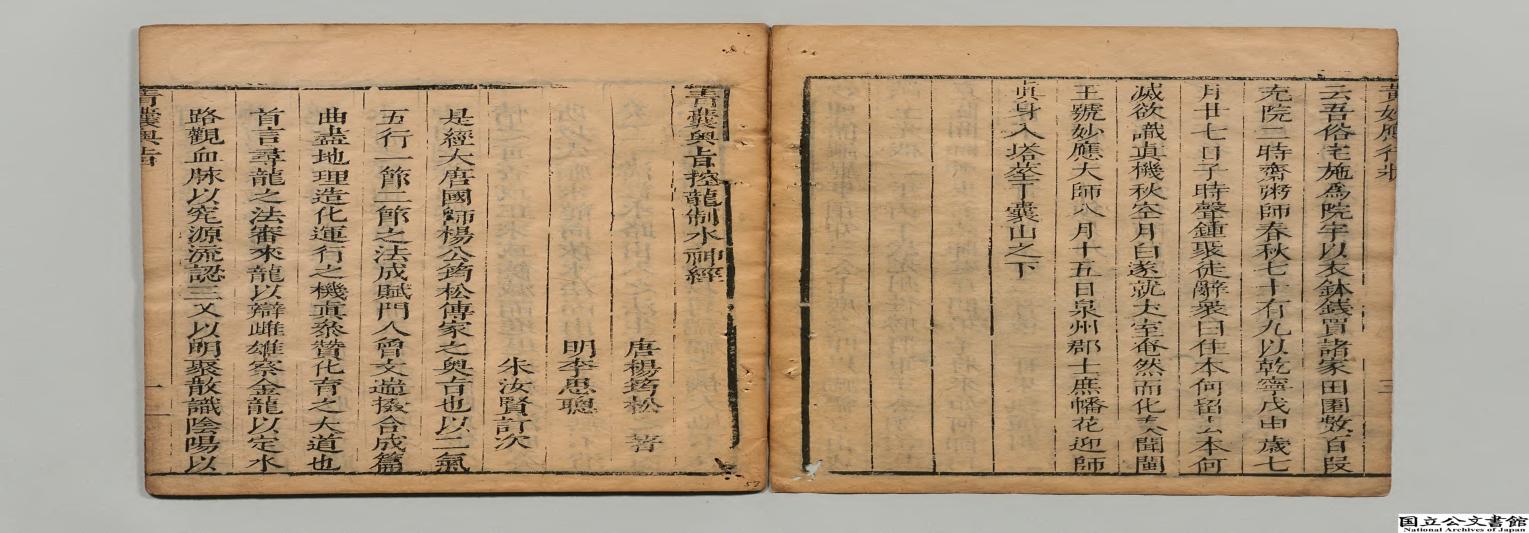 黃妙應行狀
三
云吾俗宅施為院宇以衣鉢錢買諸家田園數百段
充院二時齋粥師春秋七十有九以乾寧戊申歲七
月廿七日子時聲鍾聚徒辭衆曰住本何留去本何
滅欲識真機秋空月白遂就丈室奄然而化  聞閩
王號妙應大師八月十五日泉州郡士庶幡花迎師
真身入塔塟于囊山之下
青囊奧旨控龍制水神經
唐楊筠松 著
明李思聰
朱汝賢訂次
是經大唐國師楊公筠松傳家之奧旨也以二氣
五行一節二節之法成賦門人曾文辿撥合成篇
曲盡地理造化運行之機真叅贊化育之大道也
首言尋龍之法審來龍以辯雌雄察金龍以定水
路觀血脉以究源流認三叉以明聚散識陰陽以
青囊奧旨
一
57
国立公文書館
National Archives of Japan